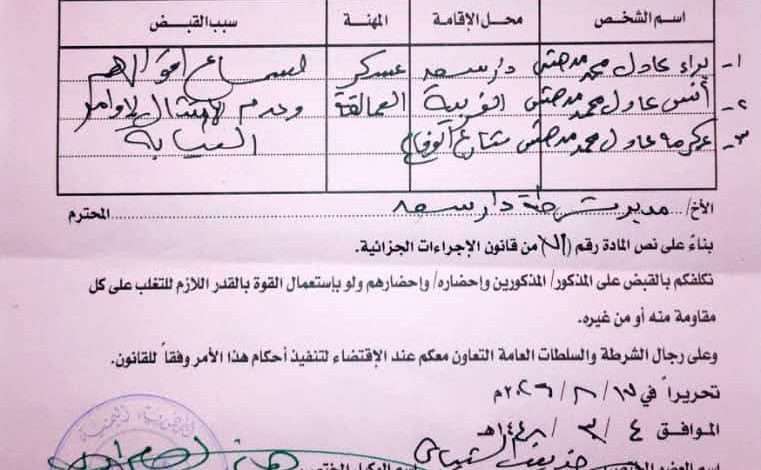 اسم الشخص محل الإقامة المهنة سبب القبض
١- براء عادل محمد دار سعد عسكر لسماع اقوالهم
٢- أنس عادل محمد الغربية العمالقة وعدم الامتثال لاوامر
٣- عكرمه عادل محمد شارع النيابة
الأخ/ مدير شرطة دار سعد المحترم
بناءً على نص المادة رقم من قانون الإجراءات الجزائية.
نكلفكم بالقبض على المذكور/ المذكورين وإحضاره/ وإحضارهم ولو بإستعمال القوة بالقدر اللازم للتغلب على كل
مقاومة منه أو من غيره.
وعلى رجال الشرطة والسلطات العامة التعاون معكم عند الإقتضاء لتنفيذ أحكام هذا الأمر وفقاً للقانون.
تحريراً في / ٨ / ٢٠٢٦م
الموافق ٤ / ٣ / ١٤٤٨هـ